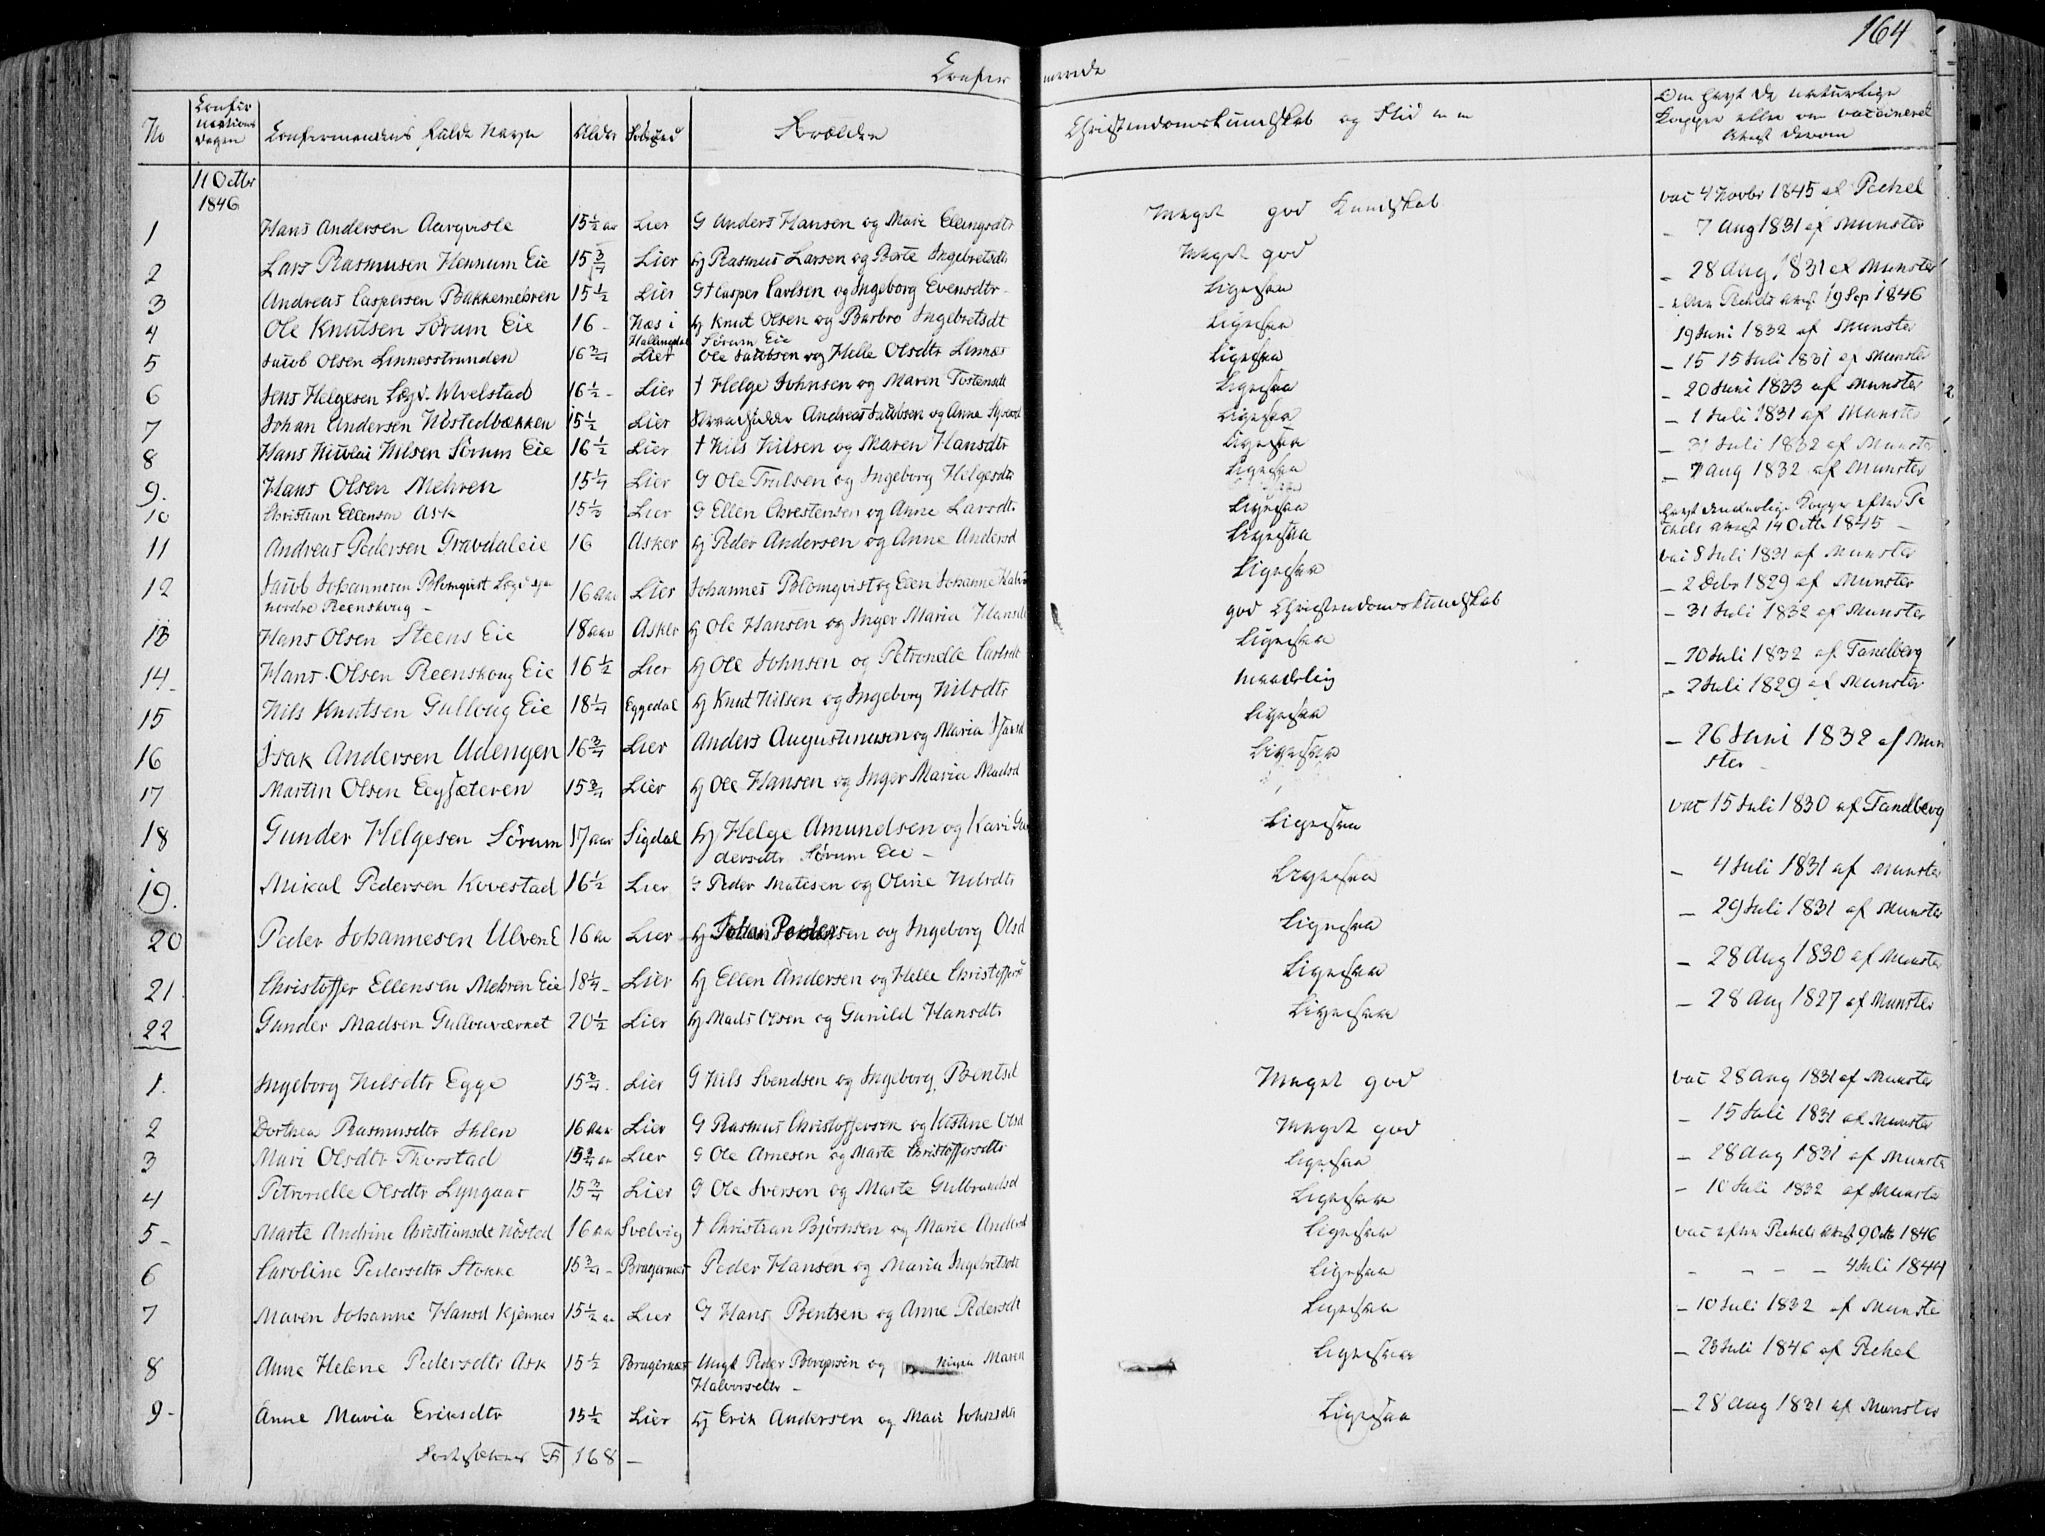 164
Confirmerede
No
Confirmations Dagen
Confirmandens fulde Navn
Alder
Fødested
Forældre
Christendomskundskab og Flid m m
Om havt de naturlige
Kopper eller er vaccineret
Attest derom
11 Octbr
1846
1 Hans Andersen 15½ aar Lier G Anders Hansen og Mari Ellingsdtr Meget god Kundskab vac 4 Novbr 1845 af Pechel
2 Lars Rasmusen Hennum Eie 15¾ Lier Hj Rasmus Larsen og Berte Ingebretsdt Meget god – 7 Aug 1831 af Munster
3 Andreas Caspersen Bakkemehren 15½ Lier G † Casper Carlsen og Ingeborg Evensdtr Ligesaa – 28 Aug 1831 af Munster
4 Ole Knutsen Sørum Eie 16 – Næs i Hallingdal Hj Knut Olsen og Barbro Ingebretsdt Sørum Eie Ligesaa – efter Pechels Attest 19 Sep 1846
5 Jacob Olsen Linnesstranden 16¾ Lier Ole Jacobsen og Helle Olsdtr Linnes Ligesaa 19 Juni 1832 af Munster
6 Jens Helgesen Logi. 16½ – Lier † Helge Johnsen og Maren Tostensdt Ligesaa – 15 Juli 1831 af Munster
7 Johan Andersen Nøstedbækken 15½ Lier Andreas Jacobsen og Anne Ligesaa – 20 Juni 1833 af Munster
8 Hans Nicolai Nilsen Sørum Eie 16½ Lier † Nils Nilsen og Maren Hansdtr Ligesaa – 1 Juli 1831 af Munster
9. Hans Olsen Mehren 15¼ Lier G Ole Trulsen og Ingeborg Helgesdtr Ligesaa – 31 Juli 1832 af Munster
10 Christian Ellensen Ask 15½ Lier G Ellen Christensen og Anne Larsdtr Ligesaa – 7 Aug 1832 af Munster
11 Andreas Pedersen Gravdaleie 16 Asker Hj Peder Andersen og Anne Andersd Ligesaa havt de naturlige Kopper efter Pechels Attest 14 Octb 1845 –
12 Jacob Johannesen Blomqvist Logi nordre Reenskoug – 16 aar Lier Johannes Blomqvist og Johanne Halv Ligesaa vac 8 Juli 1831 af Munster
13 Hans Olsen Steens Eie 18 aar Asker Hj Ole Hansen og Inger Maria Hansd god Christendomskundskab – 2 Debr 1829 af Munster
14 – Hans Olsen Reenskoug Eie 16½ Lier Hj Ole Johnsen og Petronelle Carlsdt Ligesaa – 31 Juli 1832 af Munster
15 Nils Knutsen Gulloug Eie 18¼ Eggedal Hj Knut Nilsen og Ingeborg Nilsdtr maadelig – 10 Juli 1832 af Tandberg
16 Isak Andersen Udengen 16¾ Lier Anders Augustinusen og Maria Ligesaa – 2 Juli 1829 af Munster
17 Martin Olsen Eegsæteren 15¾ Lier Hj Ole Hansen og Inger Maria Madsd Ligesaa – 26 Juni 1832 af Munster –
18 Gunder Helgesen Sørum 17 aar Sigdal Hj Helge Amundsen og Kari Gundersdtr Sørum Eie – Ligesaa vac 15 Juli 1830 af Tandberg
19. Mikal Pedersen Kovestad 16½ Lier G Peder Matisen og Oline Nilsdtr Ligesaa – 4 Juli 1831 af Munster
20 Peder Johannesen Ulven E 16 aar Lier Hj Johan Pedersen og Ingeborg Olsd Ligesaa – 29 Juli 1831 af Munster
21 Christoffer Ellensen Mehren Eie 18¼ – Lier Hj Ellen Andersen og Helle Christoffersd Ligesaa – 28 Aug 1830 af Munster
22 Gunder Madsen 20½ Lier Hj Mads Olsen og Gunild Hansdtr Ligesaa – 28 Aug 1827 af Munster
1. Ingeborg Nilsdtr Egge 15¾. Lier G Nils Svendsen og Ingeborg Bentsd Meget god vac 28 Aug 1831 af Munster
2 Dorthea Rasmusdtr 16 aar Lier G Rasmus Christoffersen og Kistine Olsd Meget god – 15 Juli 1831 af Munster
3 Mari Olsdtr Thorstad 15¾ aar Lier G Ole Arnesen og Marte Christoffersdtr Ligesaa – 28 Aug 1831 af Munster
4 Petronelle Olsdtr Lyngaas 15¾ Lier G Ole Iversen og Marte Gulbrandsd Ligesaa – 10 Juli 1832 af Munster
5 – Marte Andrine Christiansdt Nøsted 16 aar Svelvig † Christian Bjørnsen og Marie Andersd Ligesaa vac efter Pechels Attest 9 Octb 1846
6 Caroline Pedersdtr Stokke 15¾ – Bragernæs Peder Hansen og Maria Ingebretsdt Ligesaa – – – – 4 Juli 1844
7 Maren Johanne Hansd Kjenner 15½ aar Lier G Hans Bentsen og Anne Pedersdt Ligesaa – 10 Juli 1832 af Munster
8 Anne Helene Pedersdtr Ask 15½ Bragernæs Ungk Peder Borgersen og Pigen Maren Halvorsdtr – Ligesaa – 23 Juli 1846 af Pechel
9 – Anne Maria Eriksdtr 15½ Lier Hj Erik Andersen og Mari Johnsdtr Ligesaa – 28 Aug 1831 af Munster
Fortsættes F 168 –